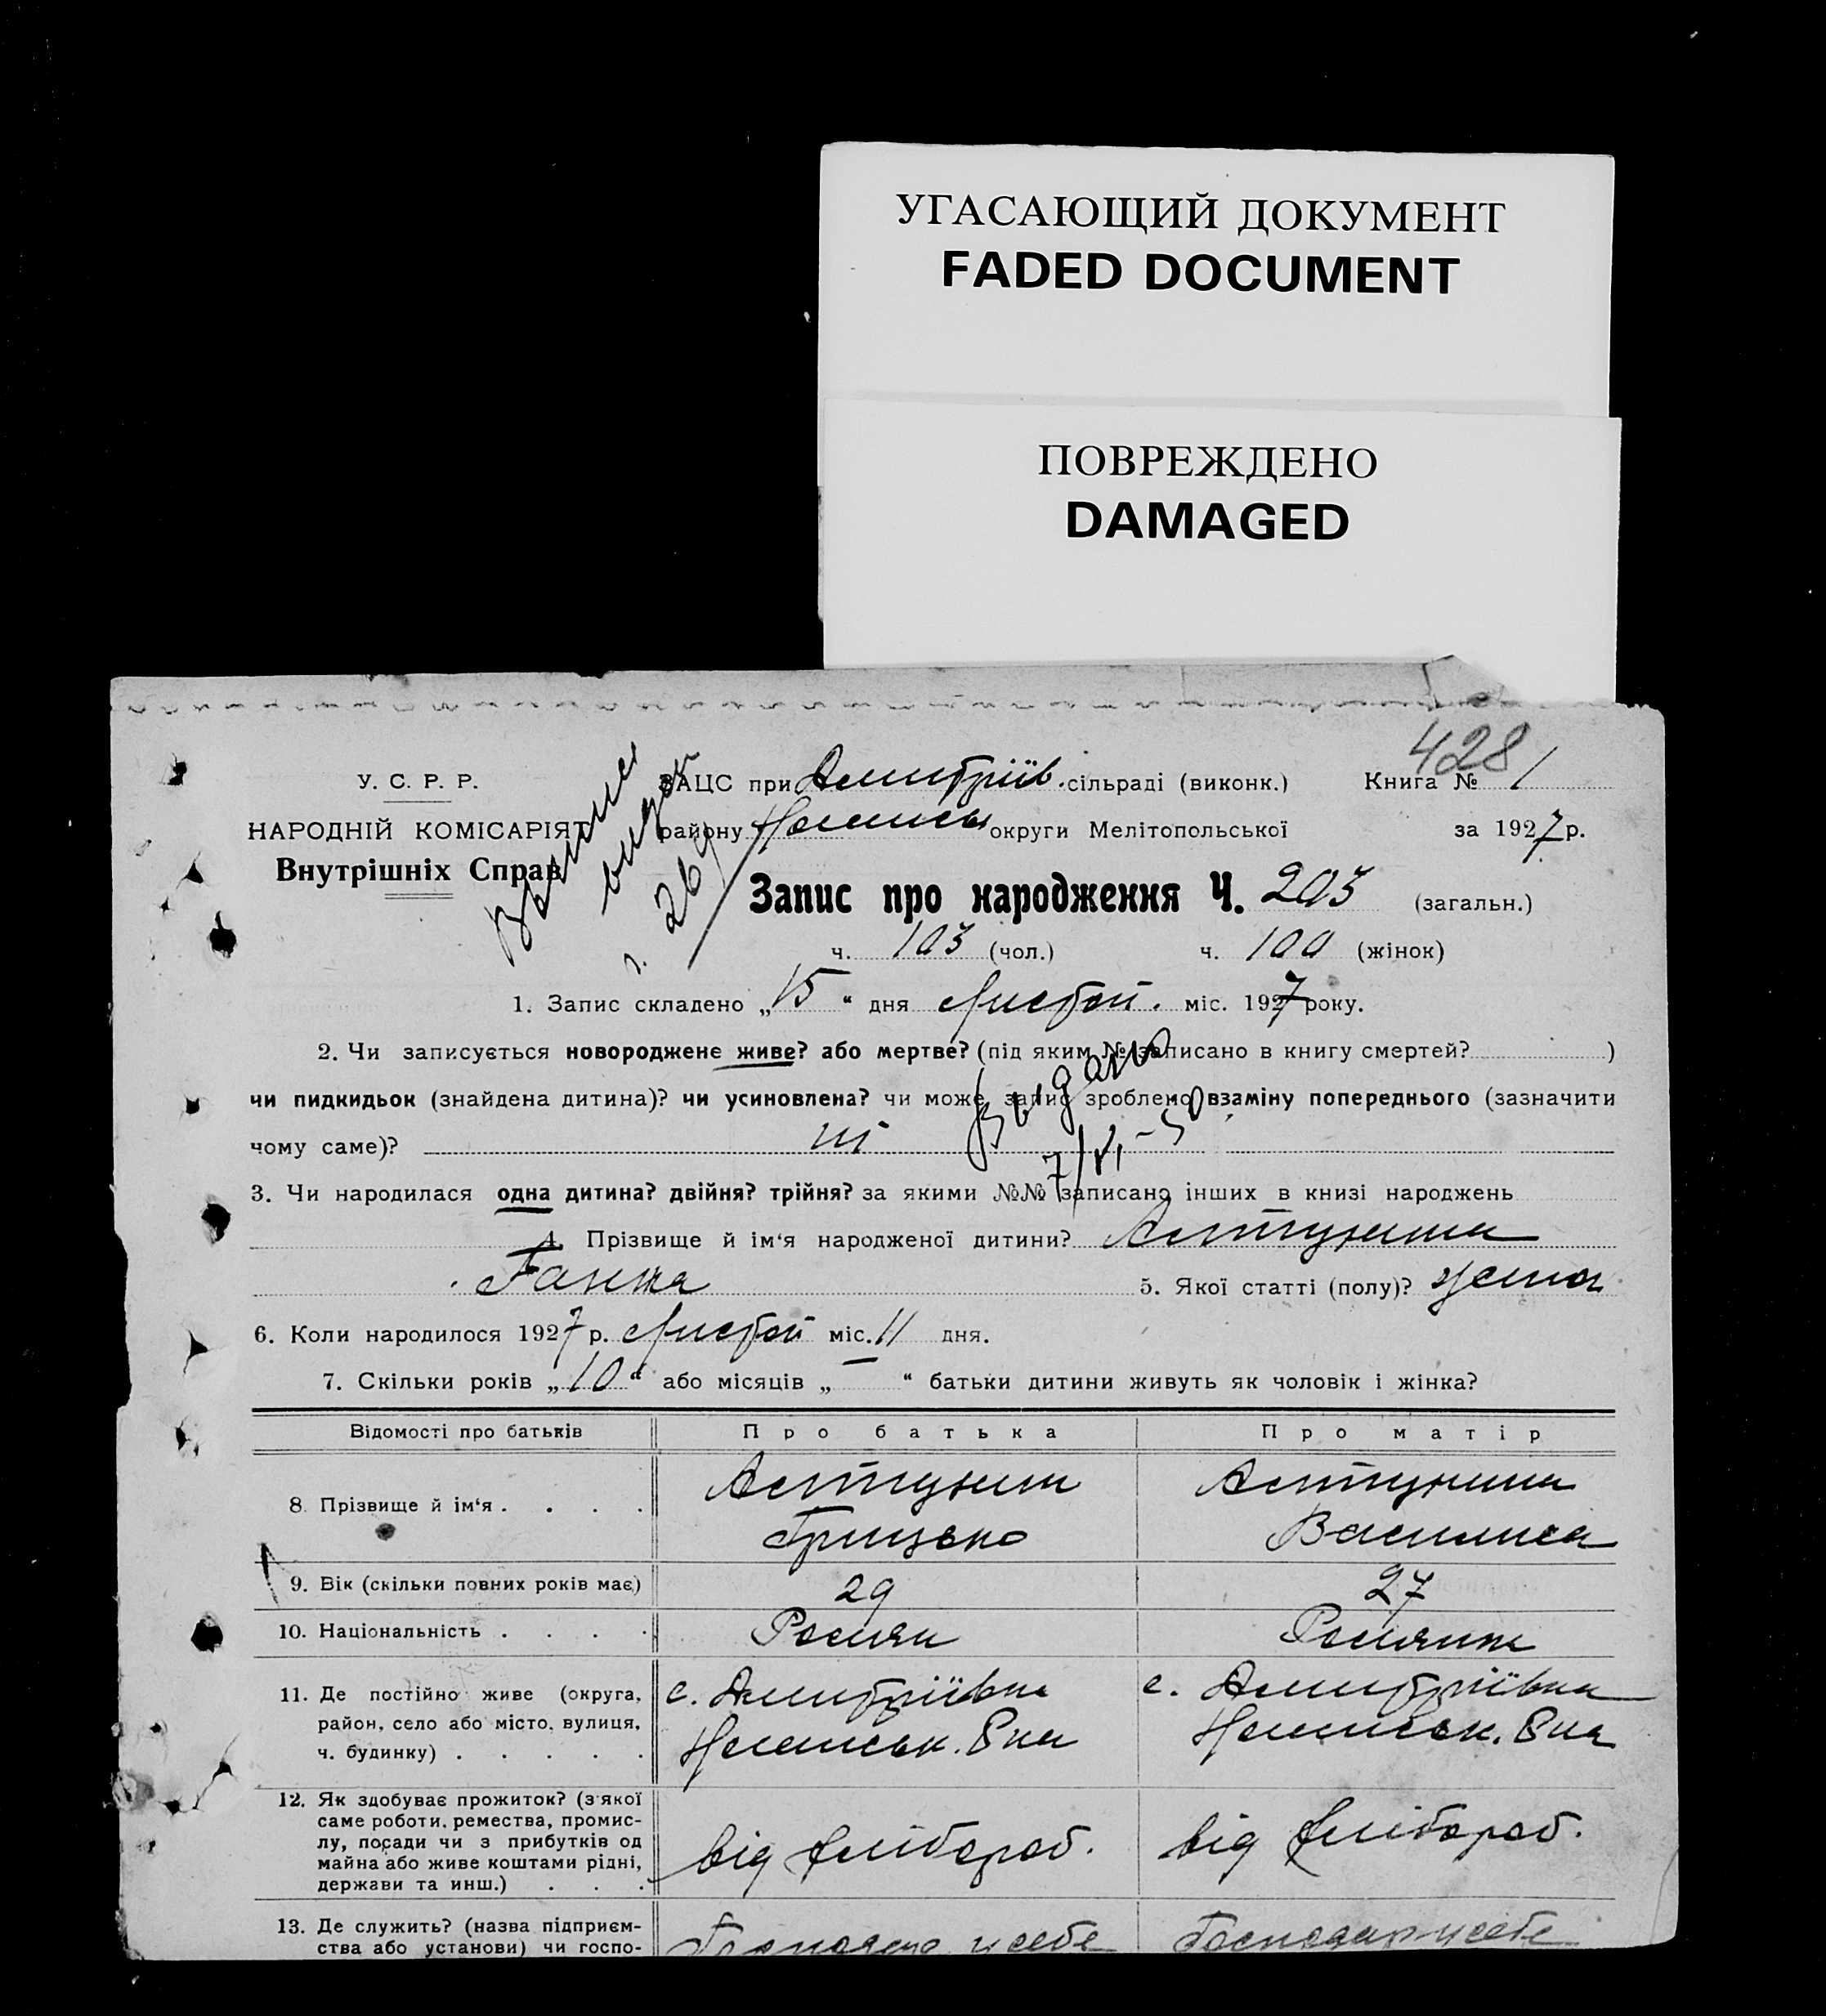 УГАСАЮЩИЙ ДОКУМЕНТ
FADED DOCUMENT
ПОВРЕЖДЕНО
DAMAGED
428
У. С. Р. Р.
НАРОДНІЙ КОМІСАРІЯТ
Внутрішніх Справ
ЗАЦС при Дмитріїв. сільраді (виконк.) Книга № 1
району округи Мелітопольської за 1927 р.
Запис про народження Ч. 203 (загальн.)
ч. 103 (чол.) ч. 100 (жінок)
1. Запис складено „15“ дня Листоп. міс. 1927 року.
2. Чи записується новороджене живе? або мертве? (під яким № записано в книгу смертей? )
чи пидкидьок (знайдена дитина)? чи усиновлена? чи може, запис зроблено взаміну попереднього (зазначити
чому саме)? ні
Видано
7/VI-50
3. Чи народилася одна дитина? двійня? трійня? за якими №№ записано інших в книзі народжень
4. Прізвище й ім‘я народженої дитини?
Ганна 5. Якої статті (полу)? жіноч.
6. Коли народилося 1927 р. Листоп міс. 11 дня.
7. Скільки років „10“ або місяців „—“ батьки дитини живуть як чоловік і жінка?
Відомості про батьків Про батька Про матір
8. Прізвище й ім‘я
Грицько Василиса
9. Вік (скільки повних років має) 29 27
10. Національність Росіян Росіянка
11. Де постійно живе (округа, район, село або місто, вулиця, ч. будинку) с. Дмитріївка с. Дмитріївка
12. Як здобуває прожиток? (з якої
саме роботи, ремества, промис-
лу, посади чи з прибутків од
майна або живе коштами рідні,
держави та инш.) від хлібороб. від хлібороб.
13. Де служить? (назва підприєм-
ства або установи) чи госпо-
Господарь у себе Господар у себе